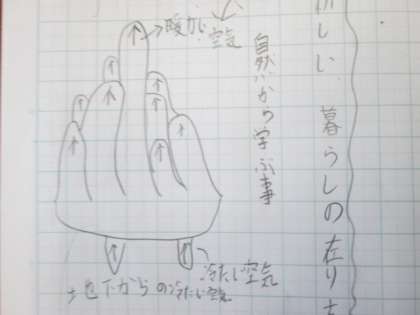 しい、暮らしの在り
自然から学ぶ事
暖かい
空気
冷たい空気
地下からの冷たい空気